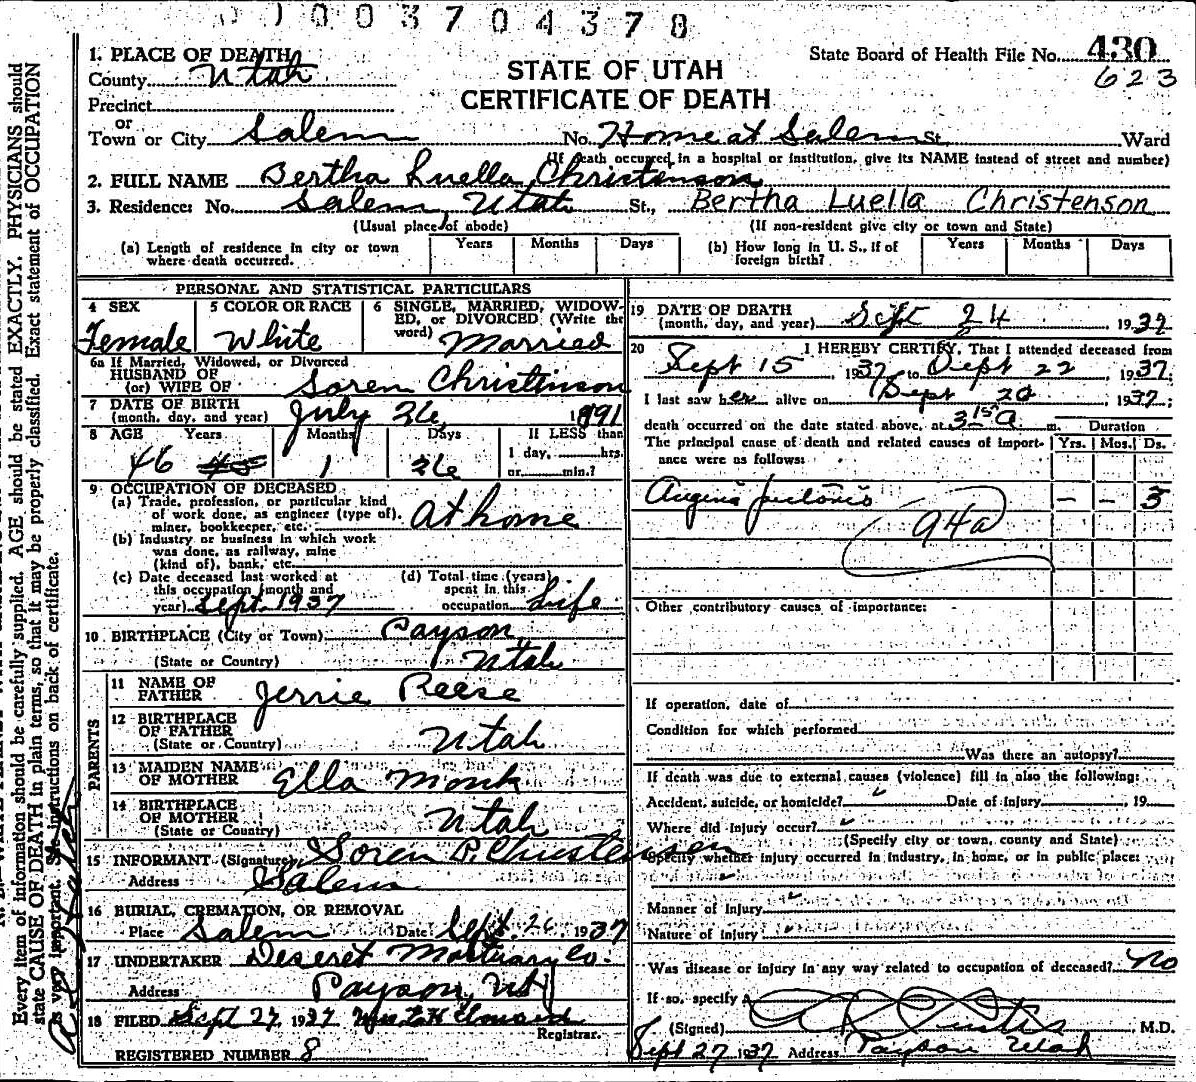 1003704378
1. PLACE OF DEATH
State Board of Health File No. 430
County Utah
STATE OF UTAH
623
Precinct
CERTIFICATE OF DEATH
or
Town or City Salem No. Home at Salem St. Ward
(If death occurred in a hospital or institution, give its NAME instead of street and number)
2. FULL NAME Bertha Luella Christenson
3. Residence: No. Salem, Utah St., Bertha Luella Christenson
(Usual place of abode) (If non-resident give city or town and State)
(a) Length of residence in city or town where death occurred. Years Months Days (b) How long in U. S., if of foreign birth? Years Months Days
PERSONAL AND STATISTICAL PARTICULARS
4 SEX 5 COLOR OR RACE 6 SINGLE, MARRIED, WIDOWED, OR DIVORCED (Write the word)
Female White Married
6a If Married, Widowed, or Divorced
HUSBAND OF
(or) WIFE OF Soren Christenson
7 DATE OF BIRTH
(month, day, and year) July 26, 1891
8 AGE Years Months Days If LESS than
46 45 1 26 1 day, hrs.
or min.?
9 OCCUPATION OF DECEASED
(a) Trade, profession, or particular kind
of work done, as engineer (type of),
miner, bookkeeper, etc. At home
(b) Industry or business in which work
was done, as railway, mine
(kind of), bank, etc.
(c) Date deceased last worked at
this occupation (month and
year) Sept. 1937
(d) Total time (years)
spent in this
occupation Life
10 BIRTHPLACE (City or Town) Payson,
(State or Country) Utah
PARENTS
11 NAME OF
FATHER Jerrie Reese
12 BIRTHPLACE
OF FATHER
(State or Country) Utah
13 MAIDEN NAME
OF MOTHER Ella Monk
14 BIRTHPLACE
OF MOTHER
(State or Country) Utah
15 INFORMANT (Signature) Soren P. Christensen
Address Salem
16 BURIAL, CREMATION, OR REMOVAL
Place Salem Date Sept. 26, 1937
17 UNDERTAKER Deseret Mortuary Co.
Address Payson, Ut
18 FILED Sept 27, 1937
Registrar.
REGISTERED NUMBER 8
19 DATE OF DEATH
(month, day, and year) Sept 24, 1937
20 I HEREBY CERTIFY, That I attended deceased from
Sept 15, 1937, to Sept 22, 1937;
I last saw her alive on Sept 20 1937;
death occurred on the date stated above, at 3 15 a m. Duration
The principal cause of death and related causes of importance were as follows: Yrs. Mos. Ds.
Angina pectoris - - 5
94a
Other contributory causes of importance:
If operation, date of
Condition for which performed
Was there an autopsy?
If death was due to external causes (violence) fill in also the following:
Accident, suicide, or homicide? Date of injury , 19
Where did injury occur?
(Specify city or town, county and State)
Specify whether injury occurred in industry, in home, or in public place:
Manner of Injury
Nature of injury
Was disease or injury in any way related to occupation of deceased? No
If so, specify
(Signed) Curtis M.D.
Sept 27, 1937 Address Payson Utah
Every item of information should be carefully supplied. AGE should be stated EXACTLY. PHYSICIANS should
state CAUSE OF DEATH in plain terms, so that it may be properly classified. Exact statement of OCCUPATION
is very important. See instructions on back of certificate.